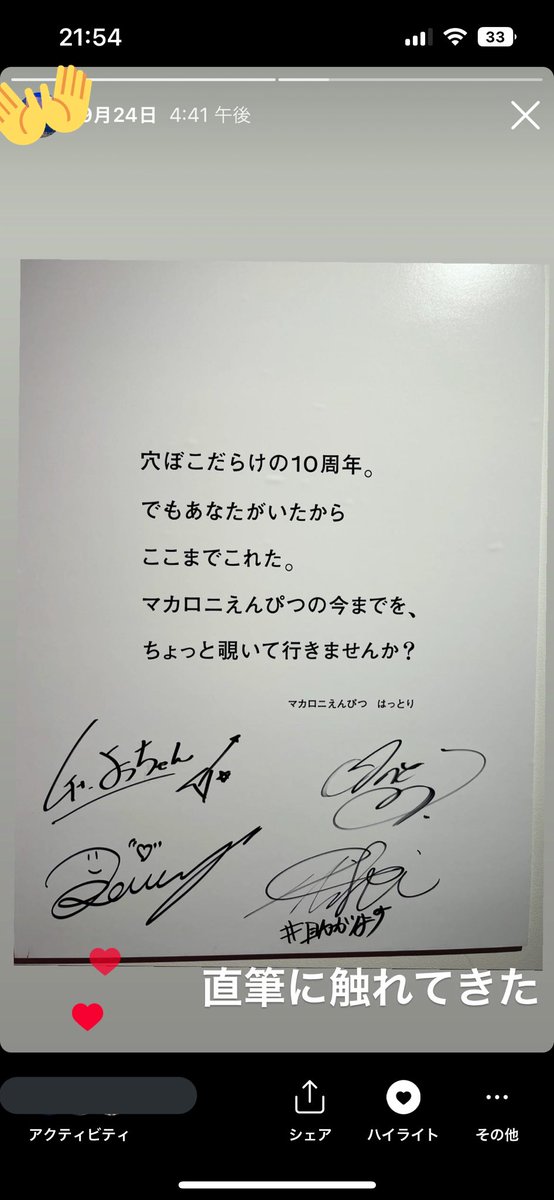 21:54
33
9月24日 4:41 午後
穴ぼこだらけの10周年。
でもあなたがいたから
ここまでこれた。
マカロニえんぴつの今までを、
ちょっと覗いて行きませんか？
マカロニえんぴつ はっとり
よっちゃん
直筆に触れてきた
アクティビティ
シェア
ハイライト
その他